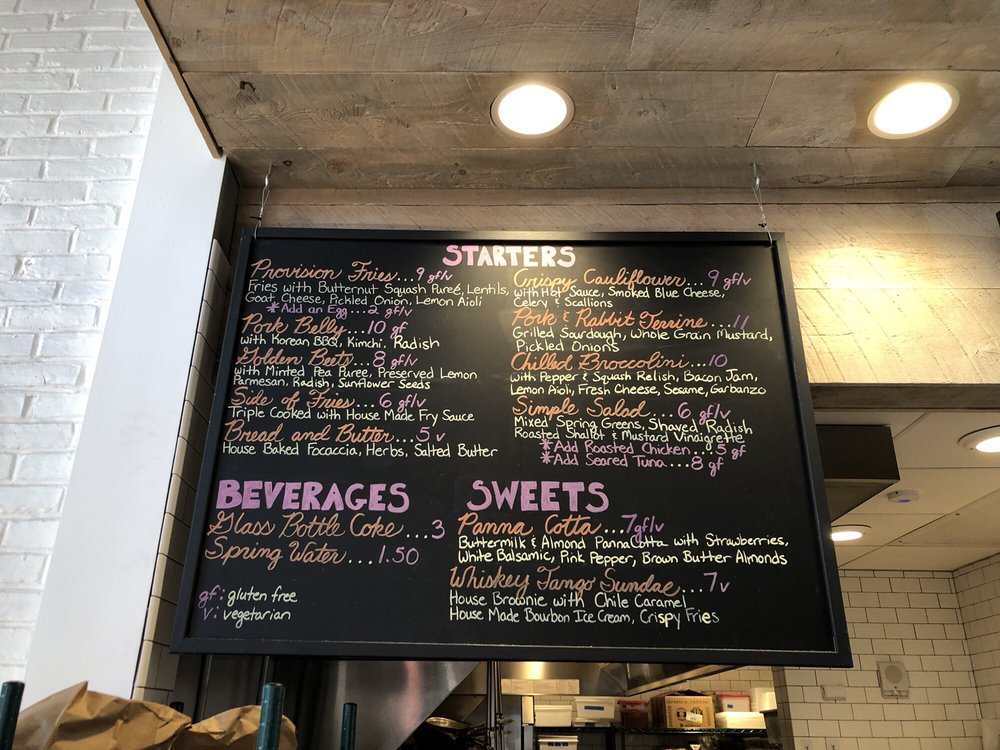 STARTERS
Provision Fries...9 gf/v
Fries with Butternut Squash Pureé, Lentils,
Goat Cheese, Pickled Onion, Lemon Aioli
*Add an Egg...2 gf/v
Pork Belly...10 gf
with Korean BBQ, Kimchi, Radish
Golden Beets...8 gf/v
with Minted Pea Puree, Preserved Lemon
Parmesan, Radish, Sunflower Seeds
Side of Fries...6 gf/v
Triple Cooked with House Made Fry Sauce
Bread and Butter...5 v
House Baked Focaccia, Herbs, Salted Butter
Crispy Cauliflower...9 gf/v
with Hot Sauce, Smoked Blue Cheese,
Celery & Scallions
Pork & Rabbit Terrine...11
Grilled Sourdough, Whole Grain Mustard,
Pickled Onions
Chilled Broccolini...10
with Pepper & Squash Relish, Bacon Jam,
Lemon Aioli, Fresh Cheese, Sesame, Garbanzo
Simple Salad...6 gf/v
Mixed Spring Greens, Shaved Radish
Roasted Shallot & Mustard Vinaigrette
*Add Roasted Chicken...5 gf
*Add Seared Tuna...8 gf
BEVERAGES
Glass Bottle Coke...3
Spring Water...1.50
gf: gluten free
v: vegetarian
SWEETS
Panna Cotta...7 gf/v
Buttermilk & Almond PannaCotta with Strawberries,
White Balsamic, Pink Pepper, Brown Butter Almonds
Whiskey Tango Sundae...7 v
House Brownie with Chile Caramel
House Made Bourbon Ice Cream, Crispy Fries